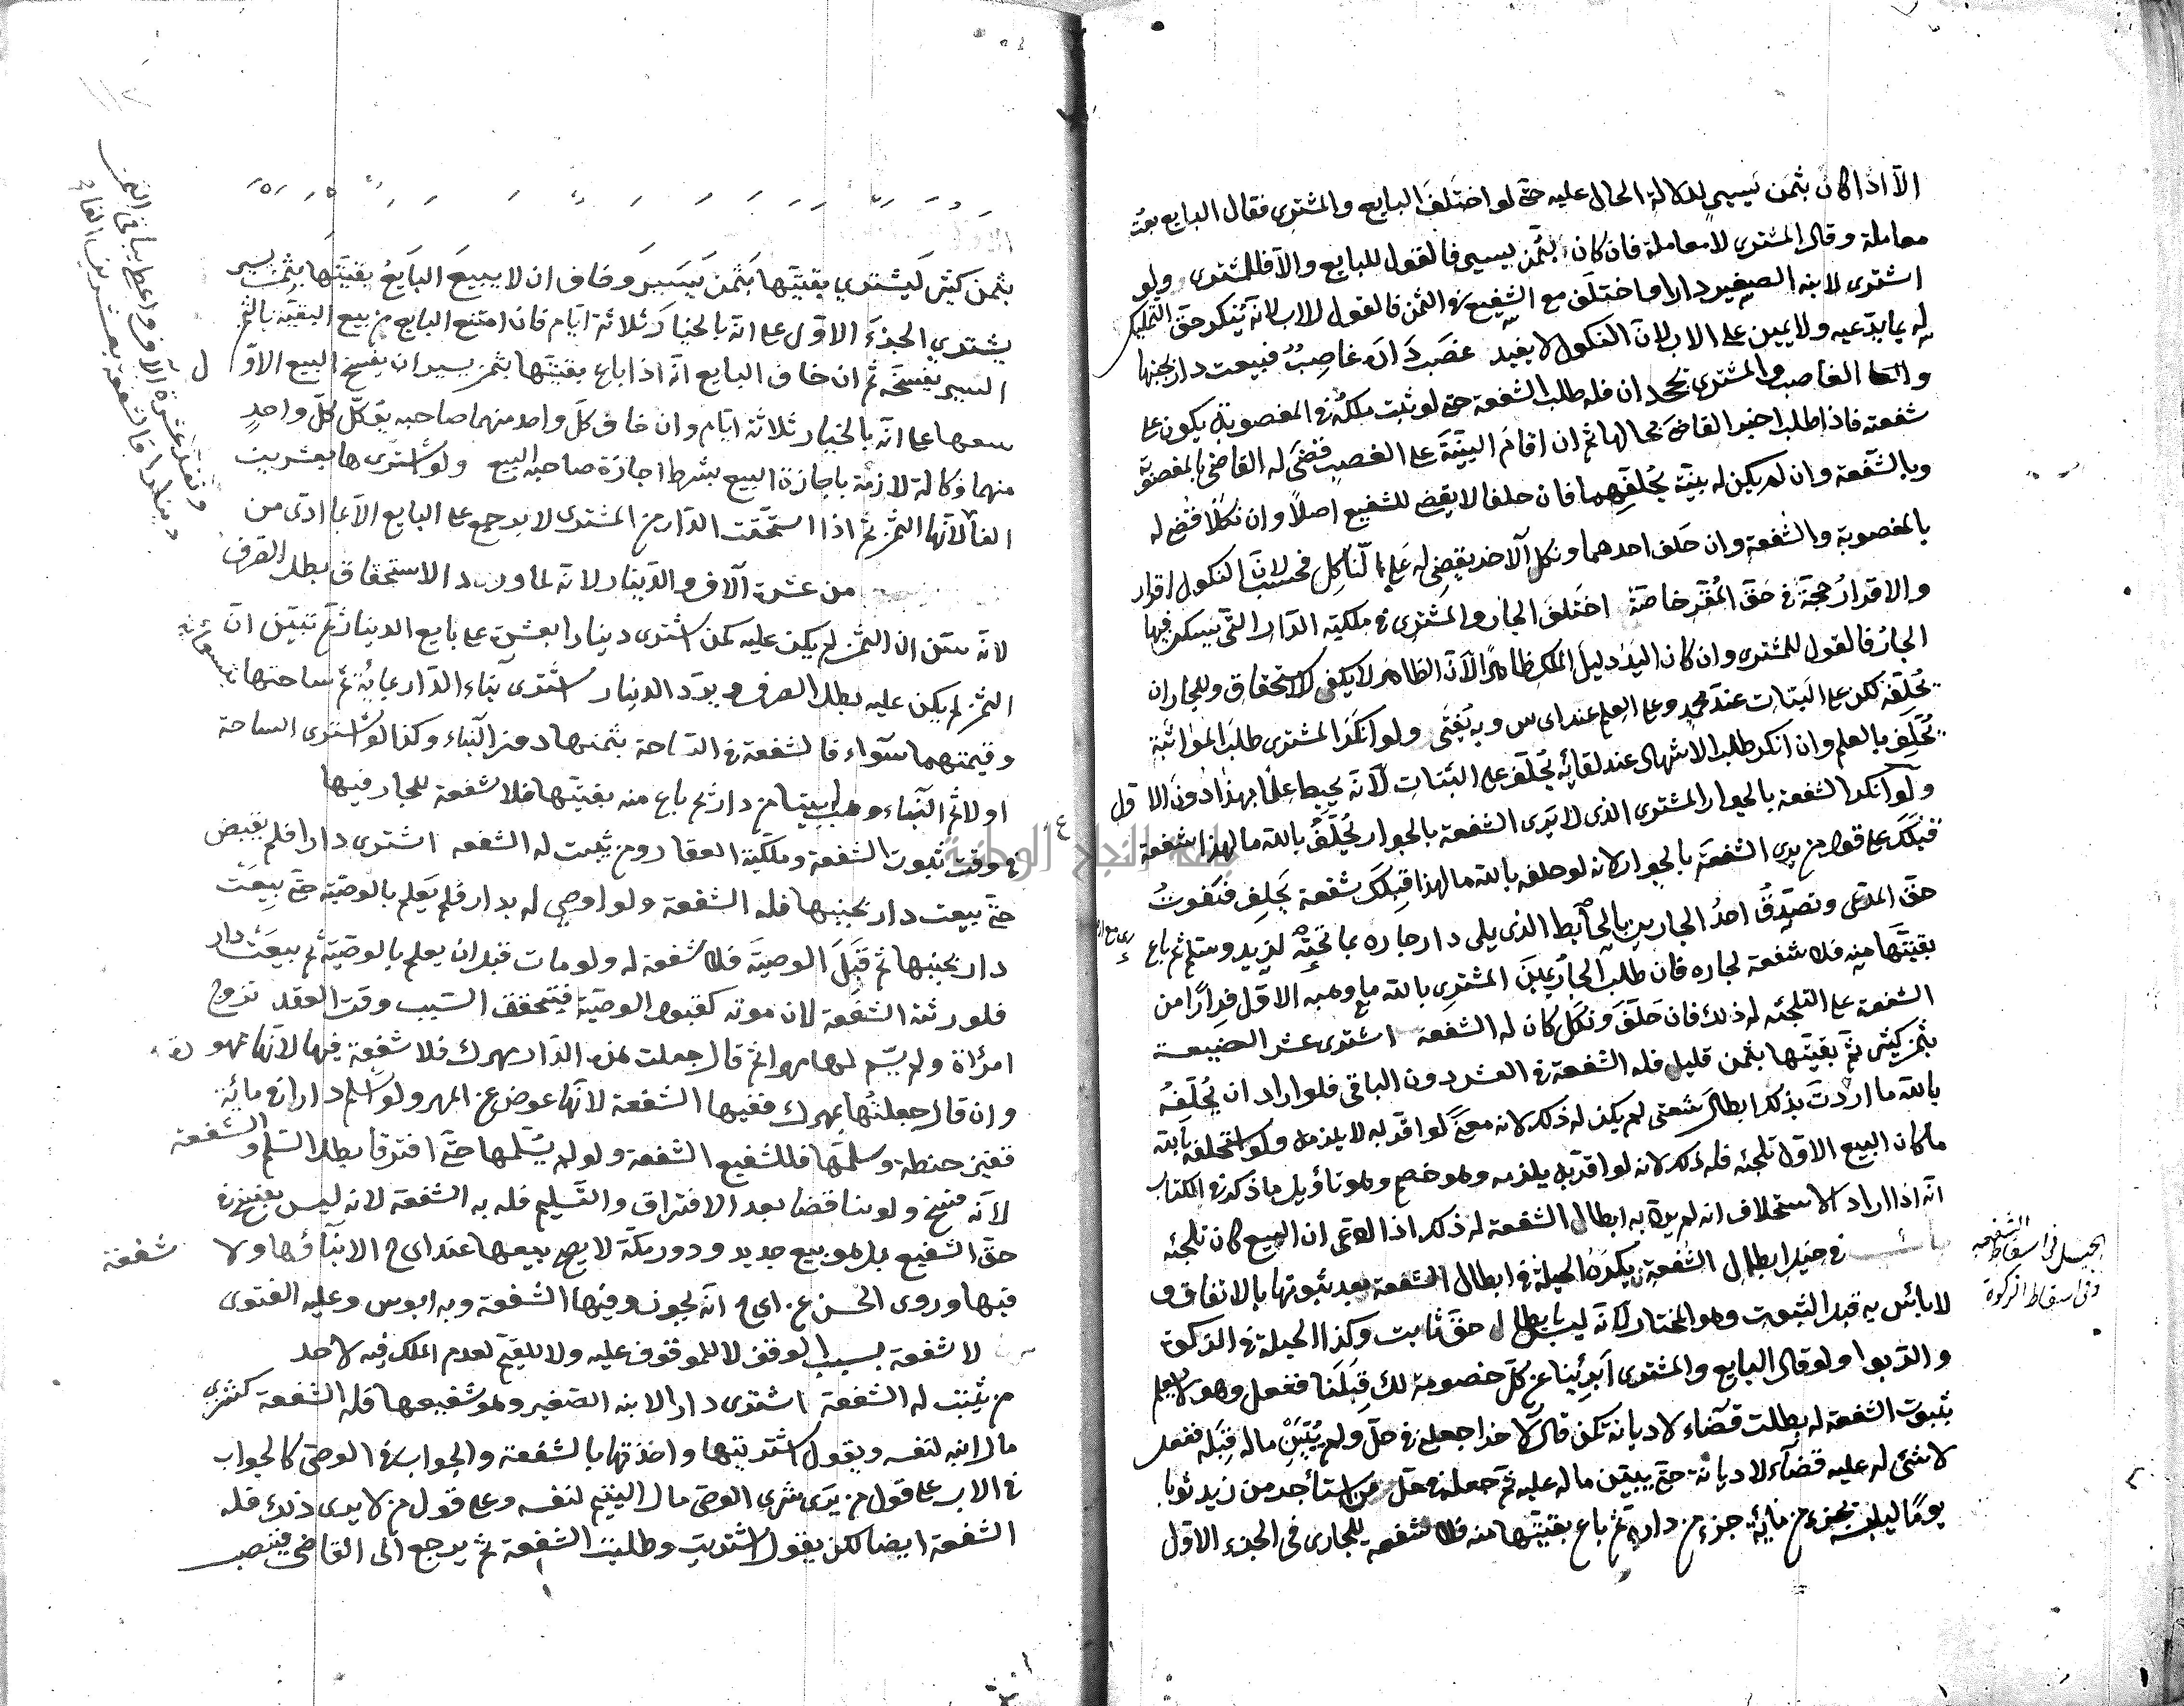 الا اذا كان بثمن يسير لدلالة الحال عليه حتى لو اختلف البايع والمشترى فقال البايع بعت
معاملة وقال المشترى لا معاملة فان كان بثمن يسير فالقول للبايع والا فللمشترى ولو
اشترى لابنه الصغير دارا واختلف مع الشفيع فى الثمن فالقول للاب لانه ينكر حق التمليك
له بما يدعيه ولا يمين على الاب لان النكول لا يفيد غصب دارا غاصب فبيعت دار بجنبها
الغاصب والمشترى يجحدان فله طلب الشفعة حتى لو ثبت ملكه فى المغصوبة يكون على
شفعته فاذا طلب اخبر القاضى بحالها ثم ان اقام البينة على الغصب قضى له القاضى بالمغصوبة
وبالشفعة وان لم يكن له بينة يحلفهما فان حلفا لا يقضى للشفيع اصلا وان نكلا قضى له
بالمغصوبة والشفعة وان حلف احدهما ونكل الآخر يقضى له على الناكل فحسب لان النكول اقرار
والاقرار حجة فى حق المقر خاصة اختلف الجار والمشترى فى ملكية الدار التى يسكن فيها
الجار فالقول للمشترى وان كان اليد دليل الملك ظاهرا الا ان الظاهر لا يكفى للاستحقاق وللجار ان
يحلفه لكن على البتات عند محمد وعلى العلم عند ابى س وبه يفتى ولو انكر المشترى طلب المواثبة
يحلف بالعلم وان انكر طلب الاشهاد عند لقائه يحلف على البتات لانه يحيط علما بهذا دون الاول
ولو انكر الشفعة بالجوار المشترى الذى لا يرى الشفعة بالجوار يحلف بالله ما لهذا شفعة
قبلك على قول من يرى الشفعة بالجوار لانه لو حلف بالله ما لهذا قبلك شفعة يحلف فتفوت
حق المدعى وتصدق احد الجارين بالحائط الذى يلى دار جاره بما تحته لزيد وسلم ثم باع
بقيتها منه فلا شفعة لجاره فان طلب الجار يمين المشترى بالله ما وهبه الاول فرارا من
الشفعة على التلجئه له ذلك فان حلف ونكل كان له الشفعة اشترى عشر الضيعة
بثمن كثير ثم بقيتها بثمن قليل فله الشفعة فى العشر دون الباقى فلو اراد ان يحلفه
بالله ما اردت بذلك ابطال شفعتى لم يكن له ذلك لانه معنى لو اقر به لا يلزمه ولو استحلفه بالله
ما كان البيع الاول تلجئه فله ذلك لانه لو اقر به يلزمه وهو خصم وهو تأويل ما ذكر فى الكتاب
انه اذا اراد الاستحلاف انه لم يرد به ابطال الشفعة له ذلك اذا ادعى ان البيع كان تلجئه
فى حيل ابطال الشفعة يكره الحيلة فى ابطال الشفعة بعد ثبوتها بالاتفاق و
الحيل فى اسقاط الشفعه
وفى اسقاط الزكوة
لا بائس به قبل الثبوت وهو المختار لانه ليس بابطال حق ثابت وكذا الحيلة فى الزكوة
والربوا ولو قال البايع والمشترى ابرئنا عن كل خصومة لك قبلنا ففعل وهو لا يعلم
بثبوت الشفعة له بطلت قضاء لا ديانة كمن قال لآخر اجعلنى فى حل ولم يبين ما له قبله ففعل
لا شئ له عليه قضاء لا ديانة حتى يبين ما له عليه ثم جعله فى حل من استأجر من زيد ثوبا
يوما ليلبسه بجزء من مائة جزء من داره ثم باع بقيتها منه فلا شفعه للجار فى الجزء الاول
١١٢
بثمن كثير ليشترى بقيتها بثمن يسير وخاف ان لا يبيع البايع بقيتها بثمن يسير
يشترى الجزء الاول على انه بالخيار ثلاثة ايام فان امتنع البايع من بيع البقية بالثمن
اليسير يفسخه ثم ان خاف البايع انه اذا باع بقيتها بثمن يسير ان يفسخ البيع الاول
على انه بالخيار ثلاثة ايام وان خاف كل واحد منهما صاحبه يؤكل كل واحد
منهما وكالة لازمة باجازة البيع بشرط اجازة صاحبه البيع ولو اشترى ها بعشرين
الفا لانها الثمن ثم اذا استحقت الدار من المشترى لا يرجع على البايع الا بما ادى من
من عشرة آلاف والدينار لانه لما ورد الاستحقاق بطل الصرف
لانه تبين ان الثمن لم يكن عليه كمن اشترى دينارا بعشرة على بايع الدينار ثم تبين ان
الثمن لم يكن عليه بطل الصرف ويرد الدينار اشترى بناء الدار بمائة ثم ساحتها بتسعمائة
وقيمتهما سواء فالشفعة فى الساحة بثمنها دون البناء وكذا لو اشترى الساحة
اولا ثم البناء وهب بيتا من دار ثم باع منه بقيتها فلا شفعة للجار فيها
فى وقت ثبوت الشفعة وملكية العقار ومن يثبت له الشفعه اشترى دارا فلم يقبض
حتى بيعت دار بجنبها فله الشفعة ولو اوصى له بدار فلم يعلم بالوصية حتى بيعت
دار بجنبها ثم قبل الوصية فلا شفعة له ولو مات قبل ان يعلم بالوصية ثم بيعت دار
فلورثته الشفعة لان موته كقبول الوصية فيتحقق السبب وقت العقد تزوج
امرأة ولم يسم لها مهرا ثم قال جعلت هذه الدار مهرك فلا شفعة فيها لانها مهر
وان قال جعلتها بمهرك ففيها الشفعة لانها عوض عن المهر ولو اسلم دارا فى مائة
قفيز حنطة وسلمها فللشفيع الشفعة ولو لم يسلمها حتى افترقا بطل السلم والشفعة
لانه فسخ ولو تناقضا بعد الافتراق والتسليم فله به الشفعة لانه ليس بفسخ فى
حق الشفيع بل هو بيع جديد ودور مكة لا يصح بيعها عند ابى ح الا بناؤها ولا شفعة
فيها وروى الحسن عن ابى ح انه يجوز وفيها الشفعة وبه ابويوس وعليه الفتوى
لا شفعة بسبب الوقف لا للموقوف عليه ولا للقيم لعدم الملك فيه لاحد
من يثبت له الشفعة اشترى دارا لابنه الصغير وهو شفيعها فله الشفعة كشرى
مال ابنه لنفسه ويقول اشتريتها واخذتها بالشفعة والجواب فى الوصى كالجواب
فى الاب على قول من يرى شرى الوصى مال اليتيم لنفسه وعلى قول من لا يرى ذلك فله
الشفعة ايضا لكن يقول اشتريت وطلبت الشفعة ثم يرجع الى القاضى فينصب
جامعة النجاح الوطنية